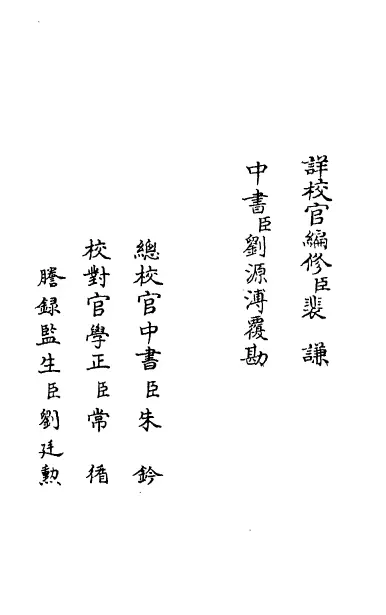 詳校官編修臣裴謙
中書臣劉源溥覆勘
總校官中書臣朱鈐
校對官學正臣常循
謄録監生臣劉廷勲